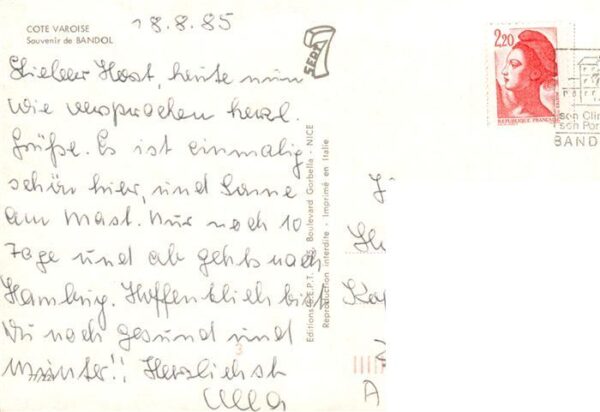 COTE VAROISE
Souvenir de BANDOL
18.8.85
Lieber Horst, heute nun
wie versprochen herzl.
Grüße. Es ist einmalig
schön hier, und Sonne
am Mast. Nur noch 10
Tage und ab gehts nach
Hamburg. Hoffentlich bist
Du noch gesund und
munter!! Herzlichst
Ulla
SEPT
Editions S.E.P.T. Boulevard Gorbella - NICE
Reproduction interdite - Imprimé en Italie
2,20
REPUBLIQUE FRANÇAISE
son Clim
son Por
BAND
A